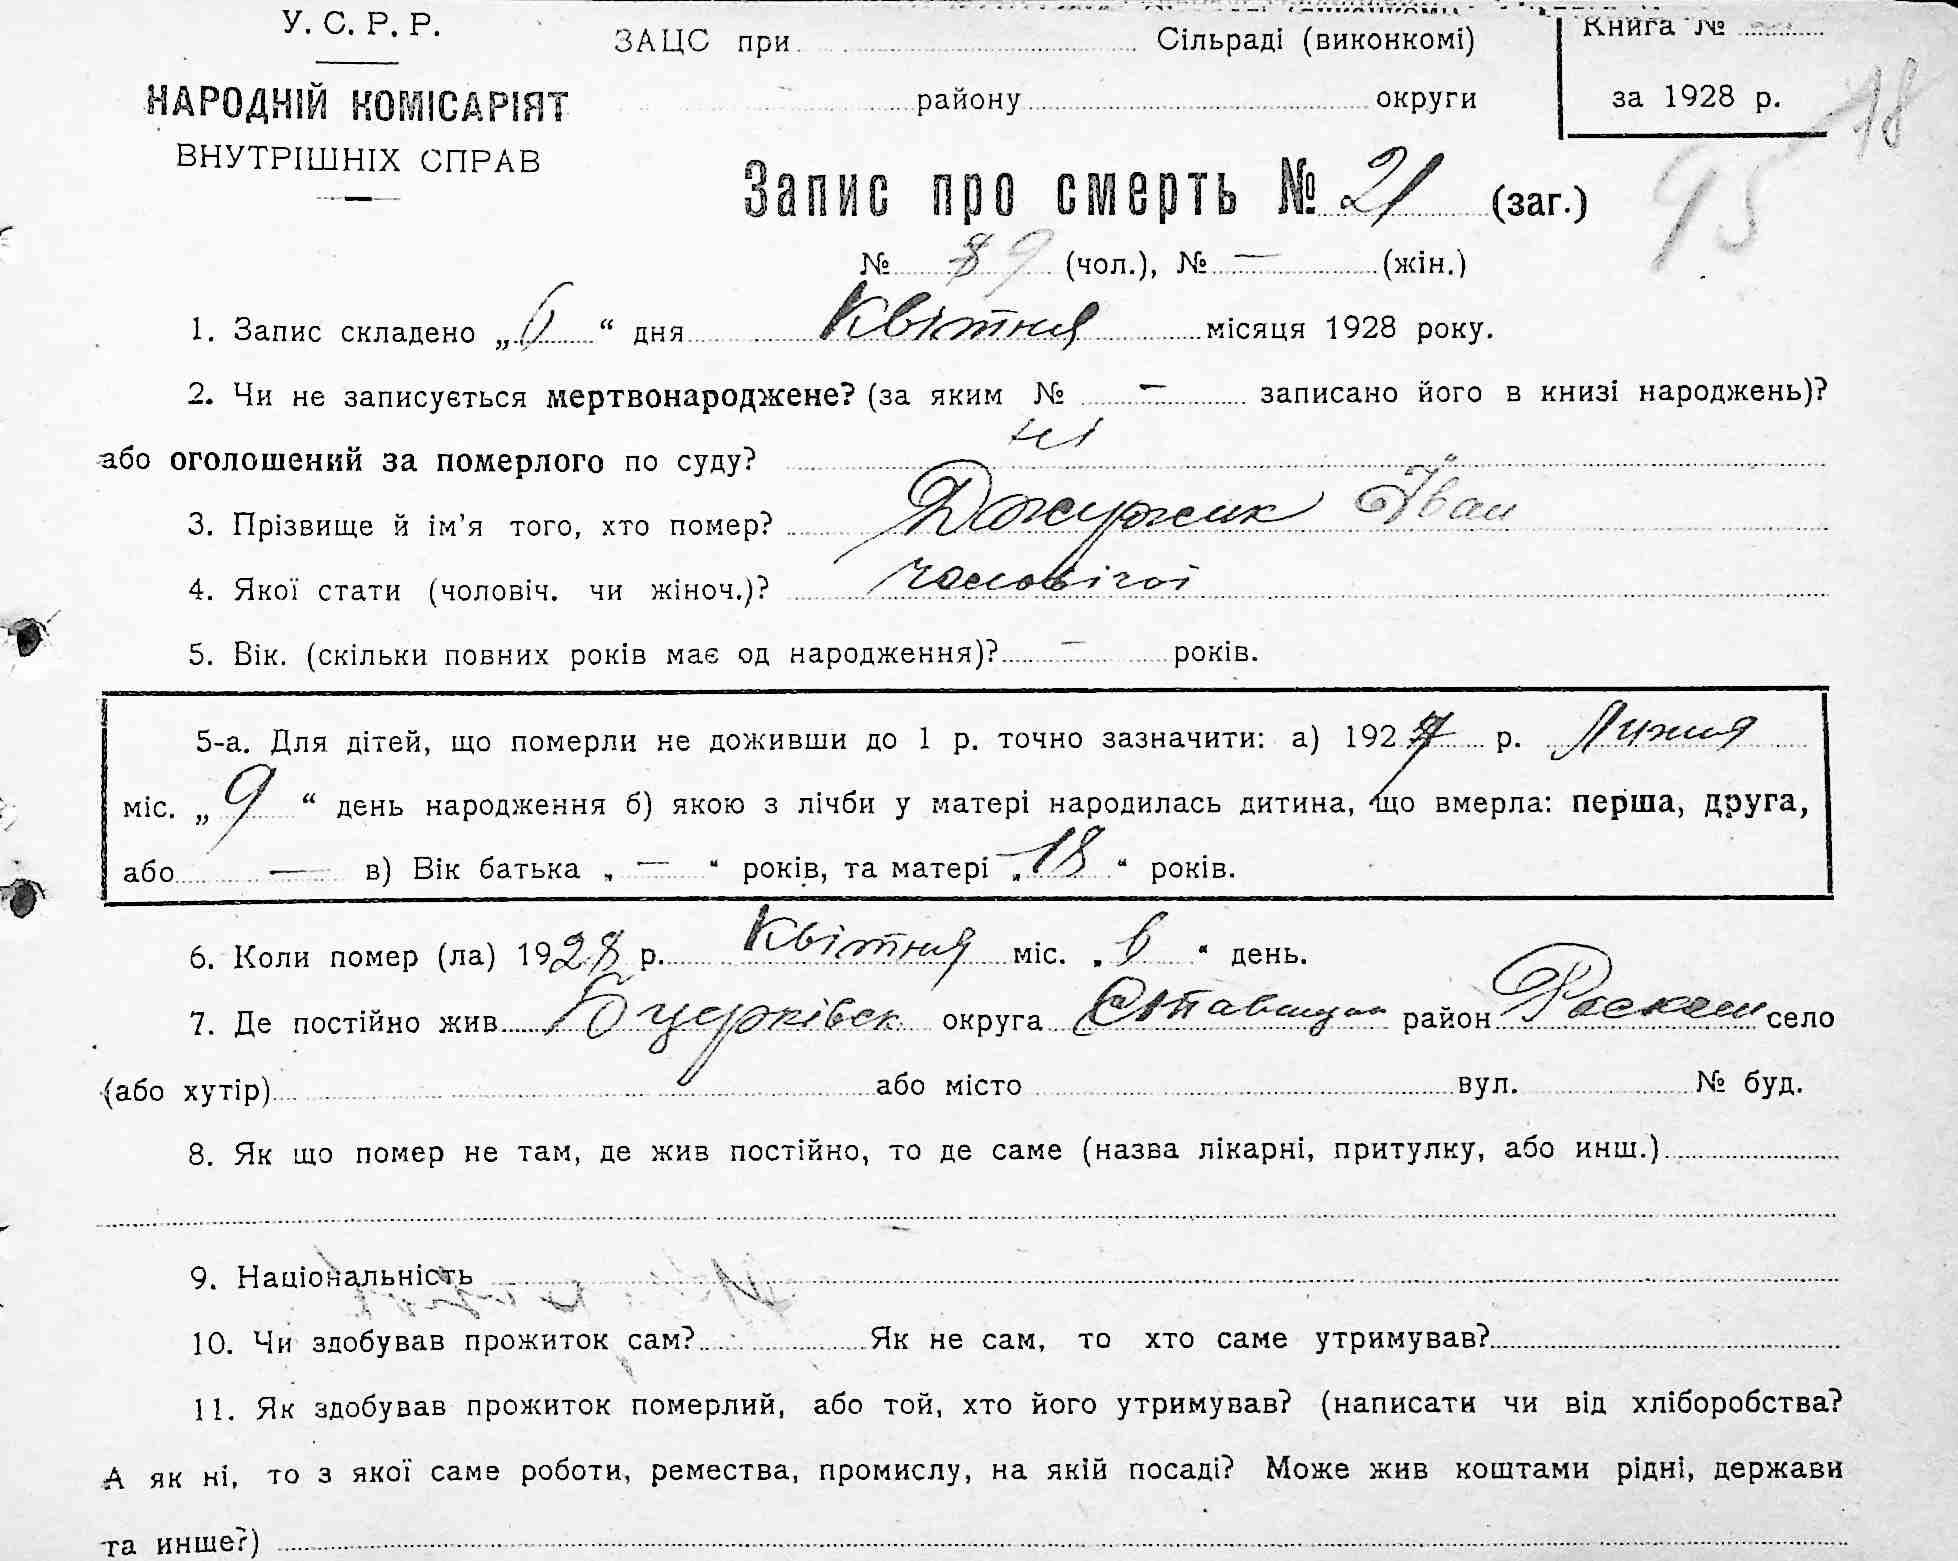 У. С. Р. Р.
НАРОДНІЙ КОМІСАРІЯТ
ВНУТРІШНІХ СПРАВ
ЗАЦС при Сільраді (виконкомі)
району округи
Книга №
за 1928 р.
18
95
Запис про смерть № 21 (заг.)
№ 89 (чол.), № — (жін.)
1. Запис складено „6“ дня Квітня місяця 1928 року.
2. Чи не записується мертвонароджене? (за яким № — записано його в книзі народжень)?
ні
або оголошений за померлого по суду?
3. Прізвище й ім'я того, хто помер? Джужик Іван
4. Якої стати (чоловіч. чи жіноч.)? чоловічої
5. Вік. (скільки повних років має од народження)? — років.
5-а. Для дітей, що померли не доживши до 1 р. точно зазначити: а) 1927 р. Липня
міс. „9“ день народження б) якою з лічби у матері народилась дитина, що вмерла: перша, друга,
або — в) Вік батька „—“ років, та матері „18“ років.
6. Коли помер (ла) 1928 р. Квітня міс. „6“ день.
7. Де постійно жив Бцерківськ округа Ставищан район село
(або хутір) або місто вул. № буд.
8. Як що помер не там, де жив постійно, то де саме (назва лікарні, притулку, або инш.)
9. Національність
10. Чи здобував прожиток сам? Як не сам, то хто саме утримував?
11. Як здобував прожиток померлий, або той, хто його утримував? (написати чи від хліборобства?
А як ні, то з якої саме роботи, ремества, промислу, на якій посаді? Може жив коштами рідні, держави
та инше?)